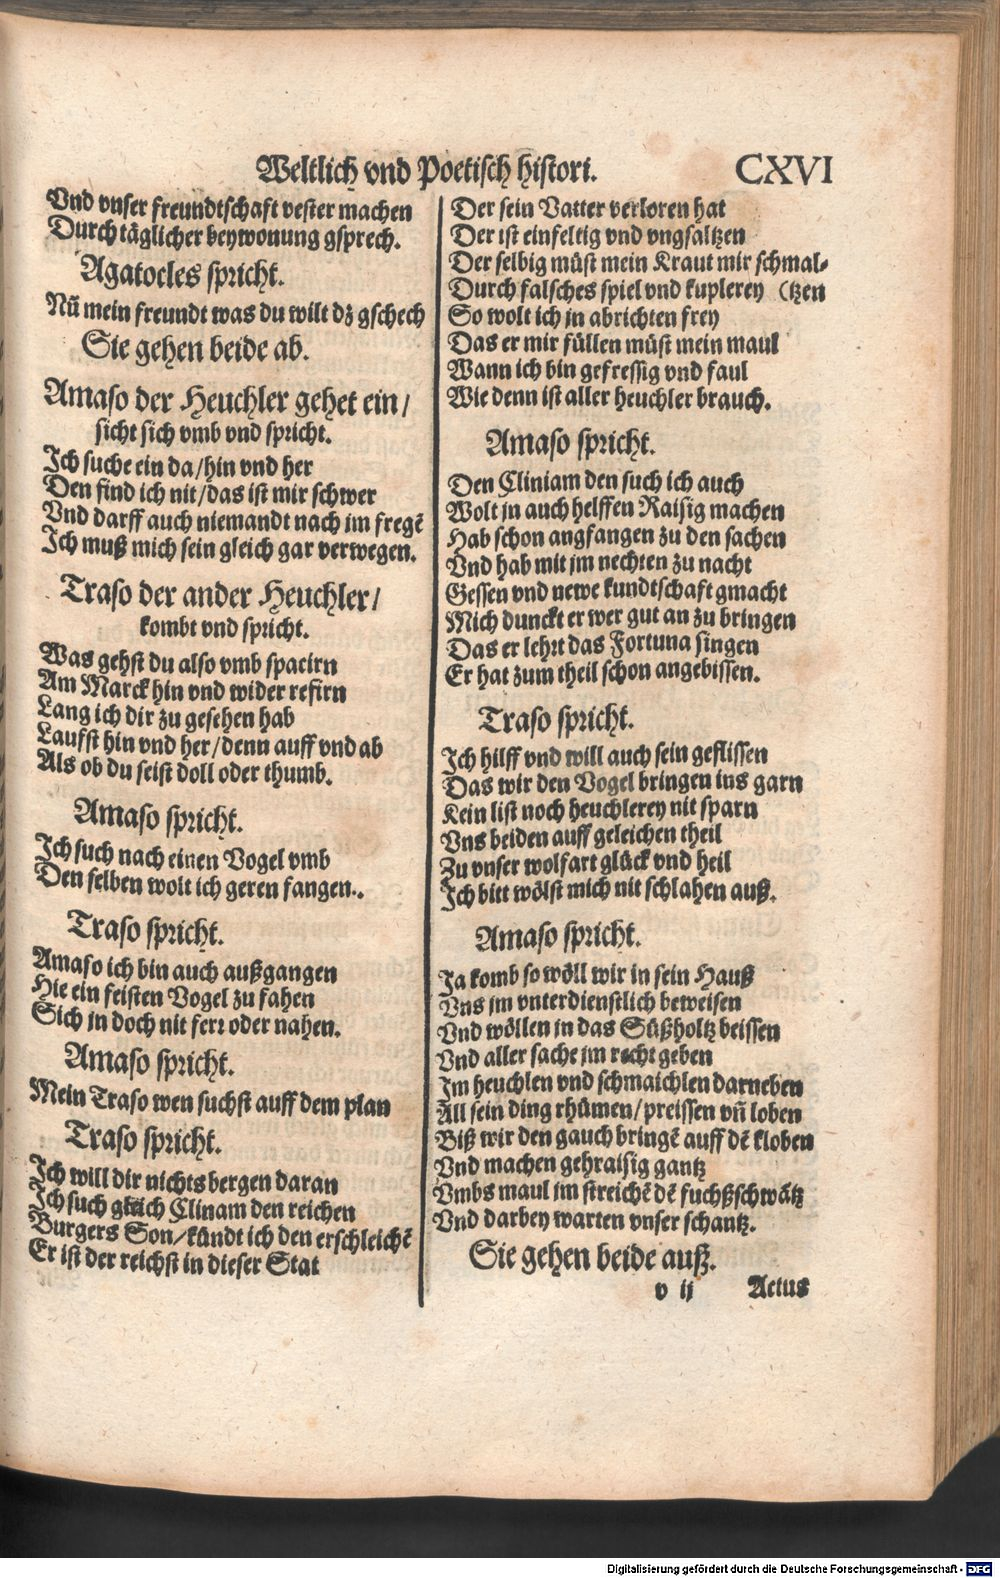 Weltlich vnd Poetisch histori. CXVI
Vnd vnser freundtschaft vester machen
Durch täglicher beywonung gsprech.
Agatocles spricht.
Nũ mein freundt was du wilt dz gschech
Sie gehen beide ab.
Amaso der Heuchler gehet ein/
sicht sich vmb vnd spricht.
Ich suche ein da/hin vnd her
Den find ich nit/das ist mir schwer
Vnd darff auch niemandt nach im fregẽ
Ich muß mich sein gleich gar verwegen.
Traso der ander Heuchler/
kombt vnd spricht.
Was gehst du also vmb spacirn
Am Marck hin vnd wider refirn
Lang ich dir zu gesehen hab
Laufst hin vnd her/denn auff vnd ab
Als ob du seist doll oder thumb.
Amaso spricht.
Ich such nach einen Vogel vmb
Den selben wolt ich geren fangen.
Traso spricht.
Amaso ich bin auch außgangen
Hie ein feisten Vogel zu fahen
Sich in doch nit ferr oder nahen.
Amaso spricht.
Mein Traso wen suchst auff dem plan
Traso spricht.
Ich will dir nichts bergen daran
Ich such gleich Clinam den reichen
Burgers Son/kündt ich den erschleichẽ
Er ist der reichst in dieser Stat
Der sein Vatter verloren hat
Der ist einfeltig vnd vngsaltzen
Der selbig müst mein Kraut mir schmal-
Durch falsches spiel vnd kuplerey (tzen
So wolt ich in abrichten frey
Das er mir füllen müst mein maul
Wann ich bin gefressig vnd faul
Wie denn ist aller heuchler brauch.
Amaso spricht.
Den Cliniam den such ich auch
Wolt in auch helffen Raisig machen
Hab schon angfangen zu den sachen
Vnd hab mit im nechten zu nacht
Gessen vnd newe kundtschaft gmacht
Mich dunckt er wer gut an zu bringen
Das er lehrt das Fortuna singen
Er hat zum theil schon angebissen.
Traso spricht.
Ich hilff vnd will auch sein geflissen
Das wir den Vogel bringen ins garn
Kein list noch heuchlerey nit sparn
Vns beiden auff geleichen theil
Zu vnser wolfart glück vnd heil
Ich bitt wölst mich nit schlahen auß.
Amaso spricht.
Ja komb so wöll wir in sein Hauß
Vns im vnterdienstlich beweisen
Vnd wöllen in das Süßholtz beissen
Vnd aller sache im recht geben
Im heuchlen vnd schmaichlen darneben
All sein ding rhümen/preissen vñ loben
Biß wir den gauch bringẽ auff dẽ kloben
Vnd machen gehraisig gantz
Vmbs maul im streichẽ dẽ fuchßschwãtz
Vnd darbey warten vnser schantz.
Sie gehen beide auß.
v ij Actus
Digitalisierung gefördert durch die Deutsche Forschungsgemeinschaft - DFG